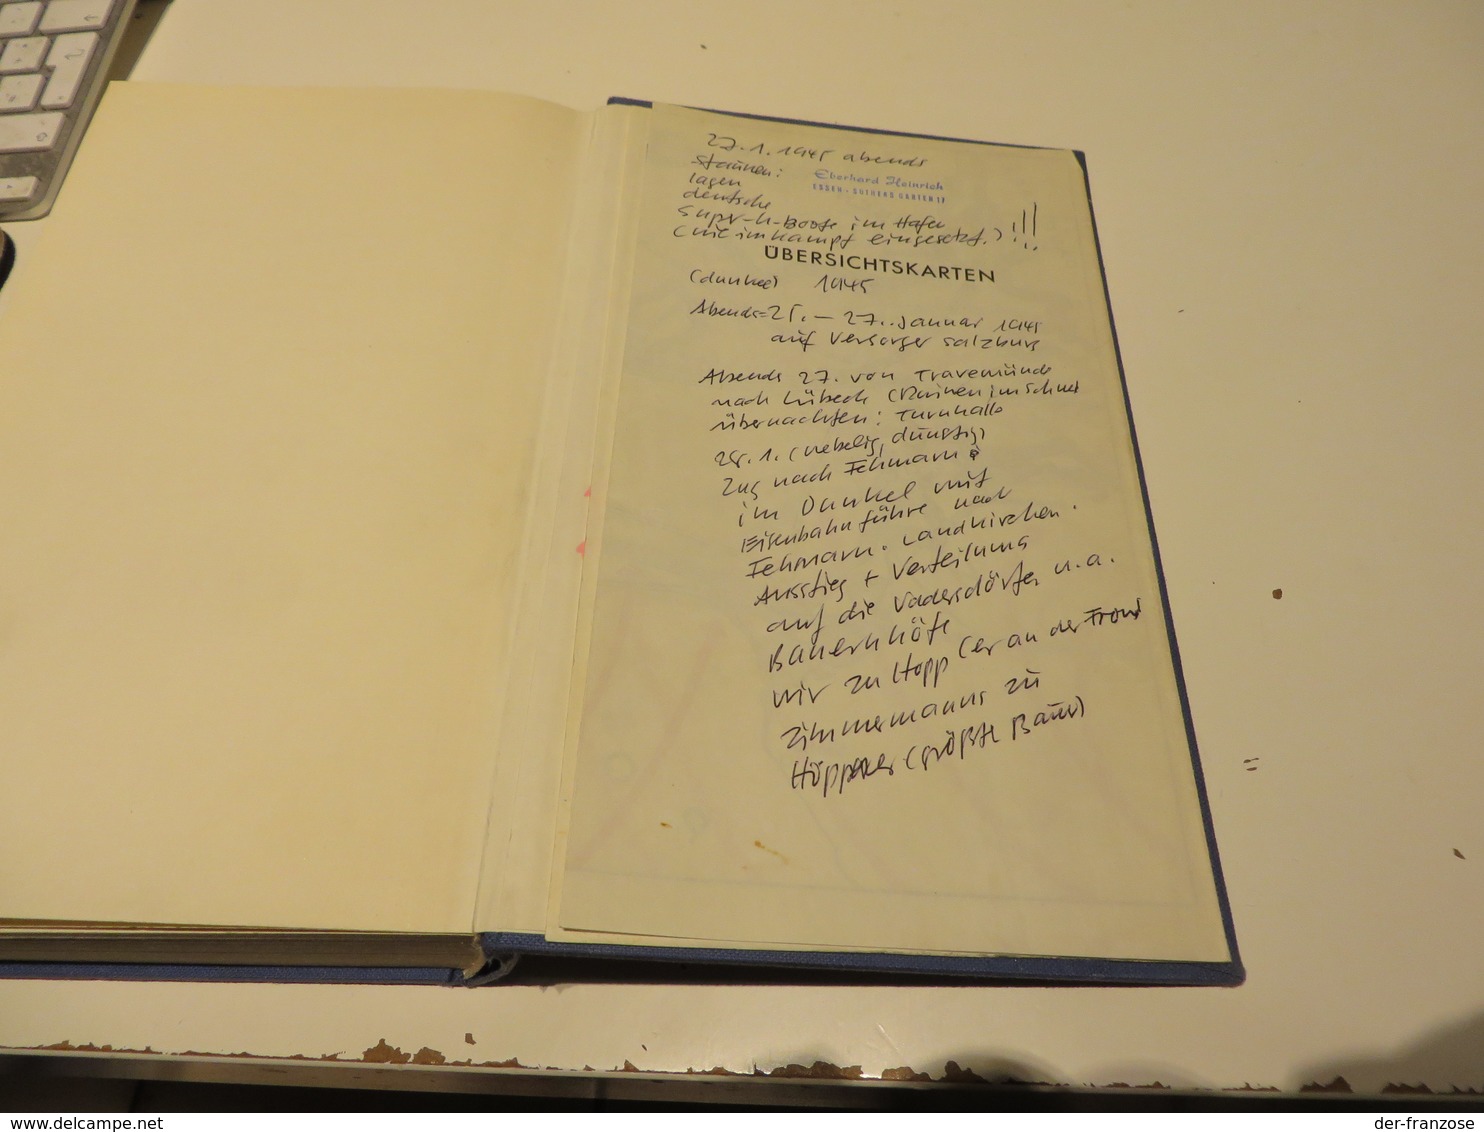 27.1.1945 abends
Staunen:
Eberhard Heinrich
ESSEN - GUTHERS GARTEN 17
lagen
deutsche
Super-U-Boote im Hafen
(nie im Kampf eingesetzt.) !!!
ÜBERSICHTSKARTEN
(dunkel) 1945
Abends 25. – 27. Januar 1945
auf Versorger Salzburg
Abends 27. von Travemünde
nach Lübeck (Ruinen im Schnee
übernachten: Turnhalle
28.1. (nebelig, dunstig)
Zug nach Fehmarn
im Dunkel mit
Eisenbahnfähre nach
Fehmarn. Landkirchen.
Ausstieg + Verteilung
auf die Vadersdörfer u.a.
Bauernhöfe
wir zu Hopp (er an der Front
Zimmermanns zu
Höppener (größte Bauer)
Hosted on www.delcampe.net
der-franzose